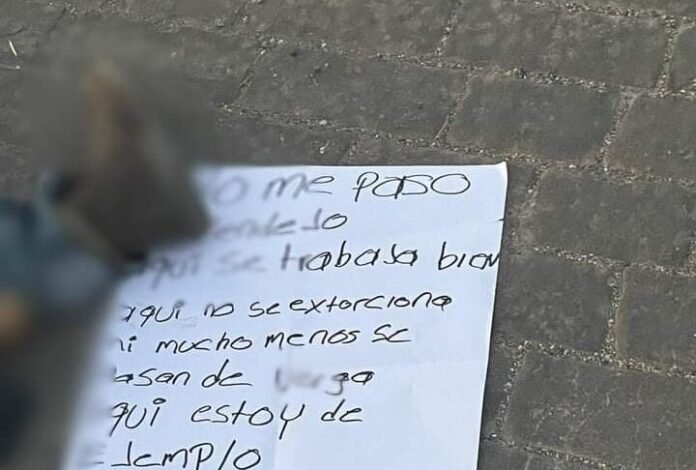 o me paso
endejo
aqui se trabasa bien
aqui no se extorciona
ni mucho menos se
asan de verga
qui estoy de
EJemplo